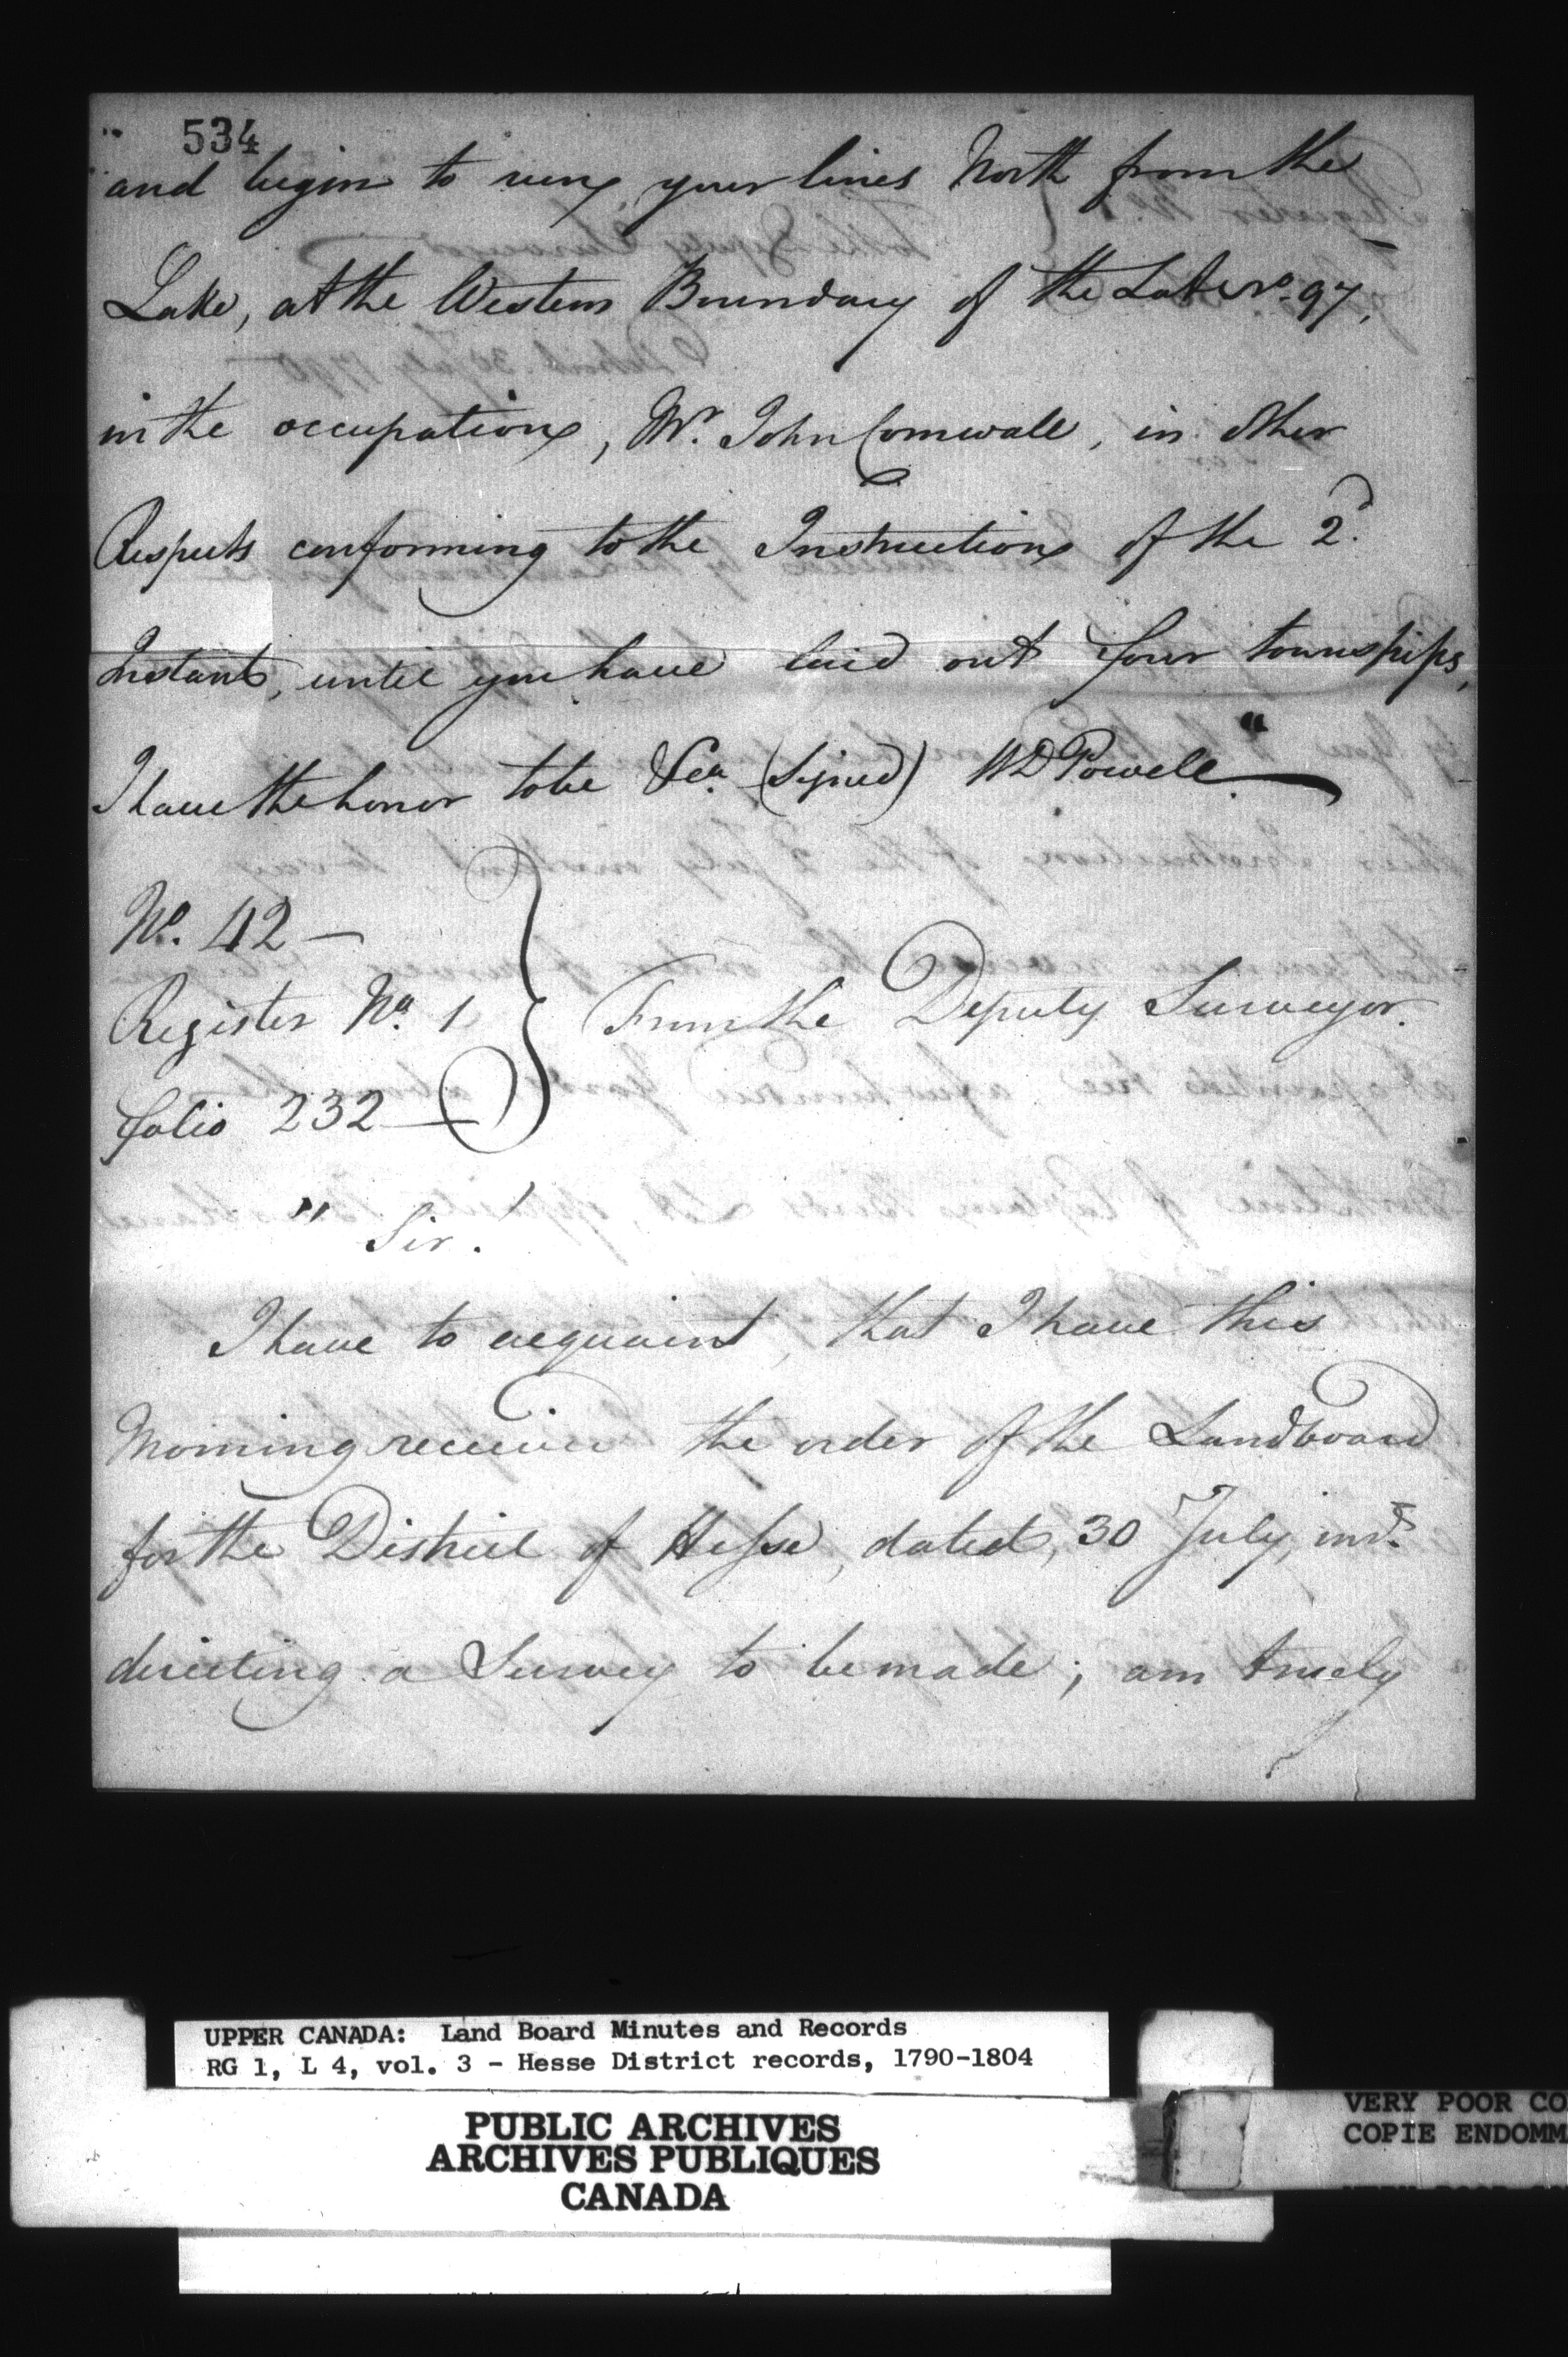 534
and begin to runy your lines North from the
Lake, at the Western Boundary of the Lot No. 97,
in the occupation, Mr. John Cornwall, in other
Respects conforming to the Instructions of the 2d.
Instant, until you have laid out four townspips,
I have the honor to be &ca. (signed) WD Powell."
No. 42 —
Register No. 1
folio 232 —
From the Deputy Surveyor.
" Sir.
I have to acquaint, that I have this
Morning received the order of the Landboard
for the District of Hesse, dated, 30 July, inst.
directing a Survey to be made; am truely
UPPER CANADA: Land Board Minutes and Records
RG 1, L 4, vol. 3 - Hesse District records, 1790-1804
PUBLIC ARCHIVES
ARCHIVES PUBLIQUES
CANADA
VERY POOR CO
COPIE ENDOMM